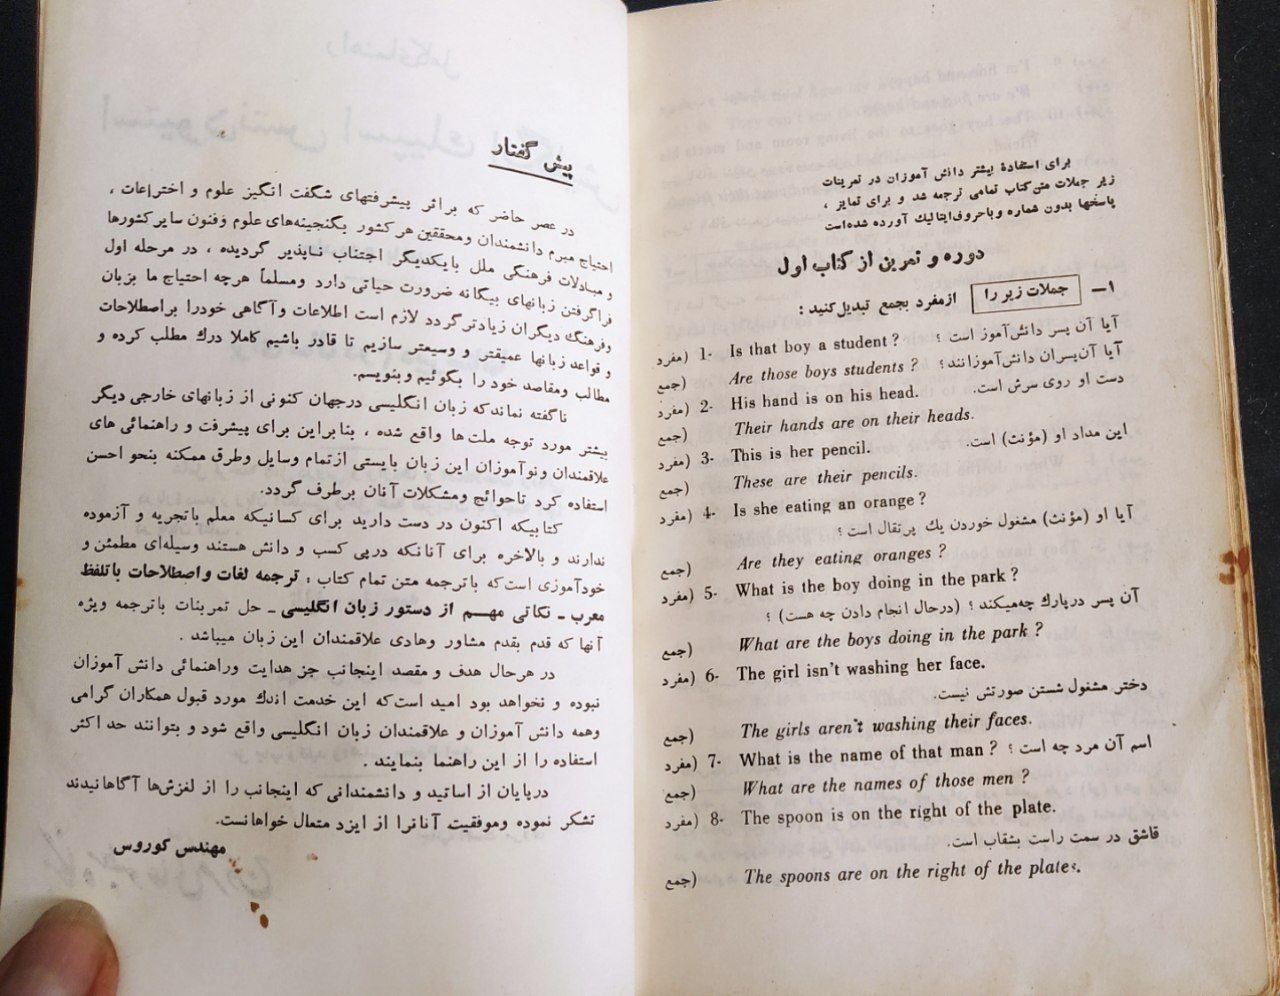 پیش گفتار
در عصر حاضر که بر اثر پیشرفتهای شگفت انگیز علوم و اختراعات ،
احتیاج مبرم دانشمندان ومحققین هر کشور بگنجینه‌های علوم وفنون سایر کشورها
و مبادلات فرهنگی ملل بایکدیگر اجتناب ناپذیر گردیده ، در مرحله اول
فراگرفتن زبانهای بیگانه ضرورت حیاتی دارد ومسلماً هرچه احتیاج ما بزبان
وفرهنگ دیگران زیادتر گردد لازم است اطلاعات وآگاهی خودرا براصطلاحات
و قواعد زبانها عمیقتر و وسیعتر سازیم تا قادر باشیم کاملا درك مطلب کرده و
مطالب ومقاصد خود را بگوئیم وبنویسم.
ناگفته نماندکه زبان انگلیسی درجهان کنونی از زبانهای خارجی دیگر
بیشتر مورد توجه ملت‌ها واقع شده ، بنابراین برای پیشرفت و راهنمائی های
علاقمندان ونوآموزان این زبان بایستی ازتمام وسایل وطرق ممکنه بنحو احسن
استفاده کرد تاحوائج ومشکلات آنان برطرف گردد.
کتابیکه اکنون در دست دارید برای کسانیکه معلم باتجربه و آزموده
ندارند و بالاخره برای آنانکه درپی کسب و دانش هستند وسیله‌ای مطمئن و
خودآموزی است‌که باترجمه متن تمام کتاب ، ترجمه لغات واصطلاحات باتلفظ
معرب ـ نکاتی مهم از دستور زبان انگلیسی ـ حل تمرینات باترجمه ویژه
آنها که قدم بقدم مشاور وهادی علاقمندان این زبان میباشد .
در هرحال هدف و مقصد اینجانب جز هدایت وراهنمائی دانش آموزان
نبوده و نخواهد بود امید است‌که این خدمت اندك مورد قبول همکاران گرامی
وهمه دانش آموزان و علاقمندان زبان انگلیسی واقع شود و بتوانند حد اکثر
استفاده را از این راهنما بنمایند .
درپایان از اساتید و دانشمندانی که اینجانب را از لغزش‌ها آگاهانیدند
تشکر نموده وموفقیت آنانرا از ایزد متعال خواهانست.
مهندس کوروس
برای استفادهٔ بیشتر دانش آموزان در تمرینات
زیر جملات متن‌کتاب تمامی ترجمه شد و برای تمایز ،
پاسخها بدون شماره وباحروف‌ایتالیك آورده شده‌است
دوره و تمرین از کتاب اول
۱ـ جملات زیر را ازمفرد بجمع تبدیل‌کنید :
(مفرد 1- Is that boy a student ? آیا آن پسر دانش‌آموز است ؟
(جمع Are those boys students ? آیا آن‌پسران دانش‌آموزانند؟
(مفرد 2- His hand is on his head. دست او روی سرش است.
(جمع Their hands are on their heads.
(مفرد 3- This is her pencil. این مداد او (مؤنث) است.
(جمع These are their pencils.
(مفرد 4- Is she eating an orange ?
آیا او (مؤنث) مشغول خوردن یك پرتقال است ؟
(جمع Are they eating oranges ?
(مفرد 5- What is the boy doing in the park ?
آن پسر درپارك چه‌میکند ؟ (درحال انجام دادن چه هست) ؟
(جمع What are the boys doing in the park ?
(مفرد 6- The girl isn't washing her face.
دختر مشغول شستن صورتش نیست.
(جمع The girls aren't washing their faces.
(مفرد 7- What is the name of that man ? اسم آن مرد چه است ؟
(جمع What are the names of those men ?
(مفرد 8- The spoon is on the right of the plate.
قاشق در سمت راست بشقاب است.
(جمع The spoons are on the right of the plates.